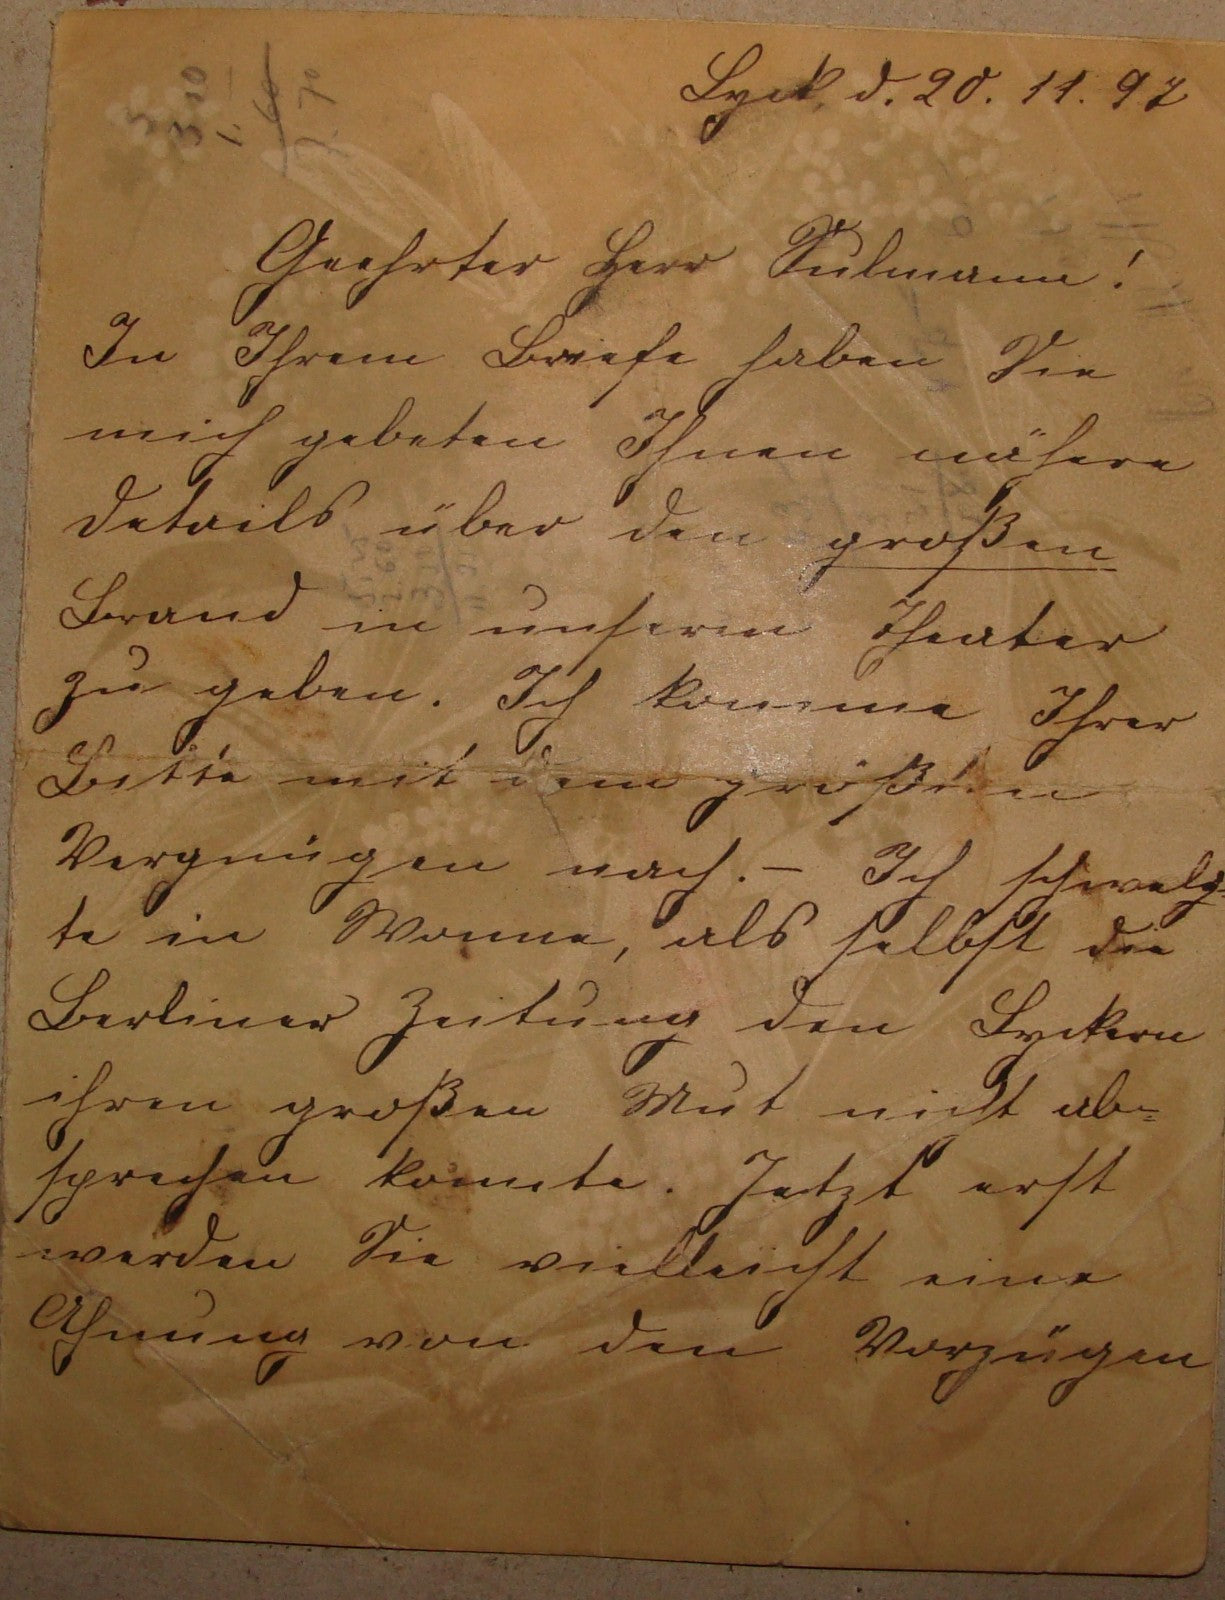 Lyck, d. 20. 11. 97
Geehrter Herr Sulmann!
In Ihrem Briefe haben Sie
mich gebeten Ihnen nähere
Details über den großen
Brand in unserm Theater
zu geben. Ich komme Ihrer
Bitte mit dem größten
Vergnügen nach. – Ich schwelg-
te in Wonne, als selbst die
Berliner Zeitung den Lyckern
ihren großen Mut nicht ab=
sprechen konnte. Jetzt erst
werden Sie vielleicht eine
Ahnung von den Vorzügen